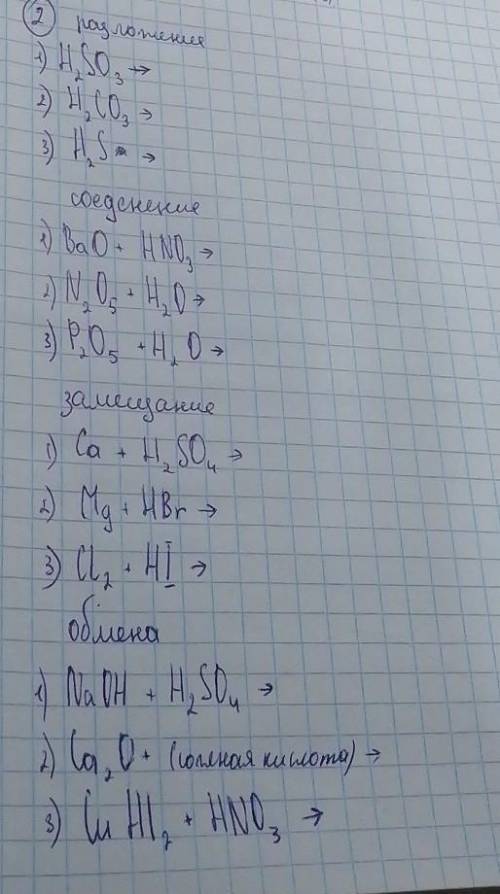 2 разложения
1) H₂SO₃ →
2) H₂CO₃ →
3) H₂S →
соеденение
1) BaO + HNO₃ →
2) N₂O₅ + H₂O →
3) P₂O₅ + H₂O →
замещание
1) Ca + H₂SO₄ →
2) Mg + HBr →
3) Cl₂ + HI →
обмена
1) NaOH + H₂SO₄ →
2) Ca₂O + (соляная кислота) →
3) + HNO₃ →